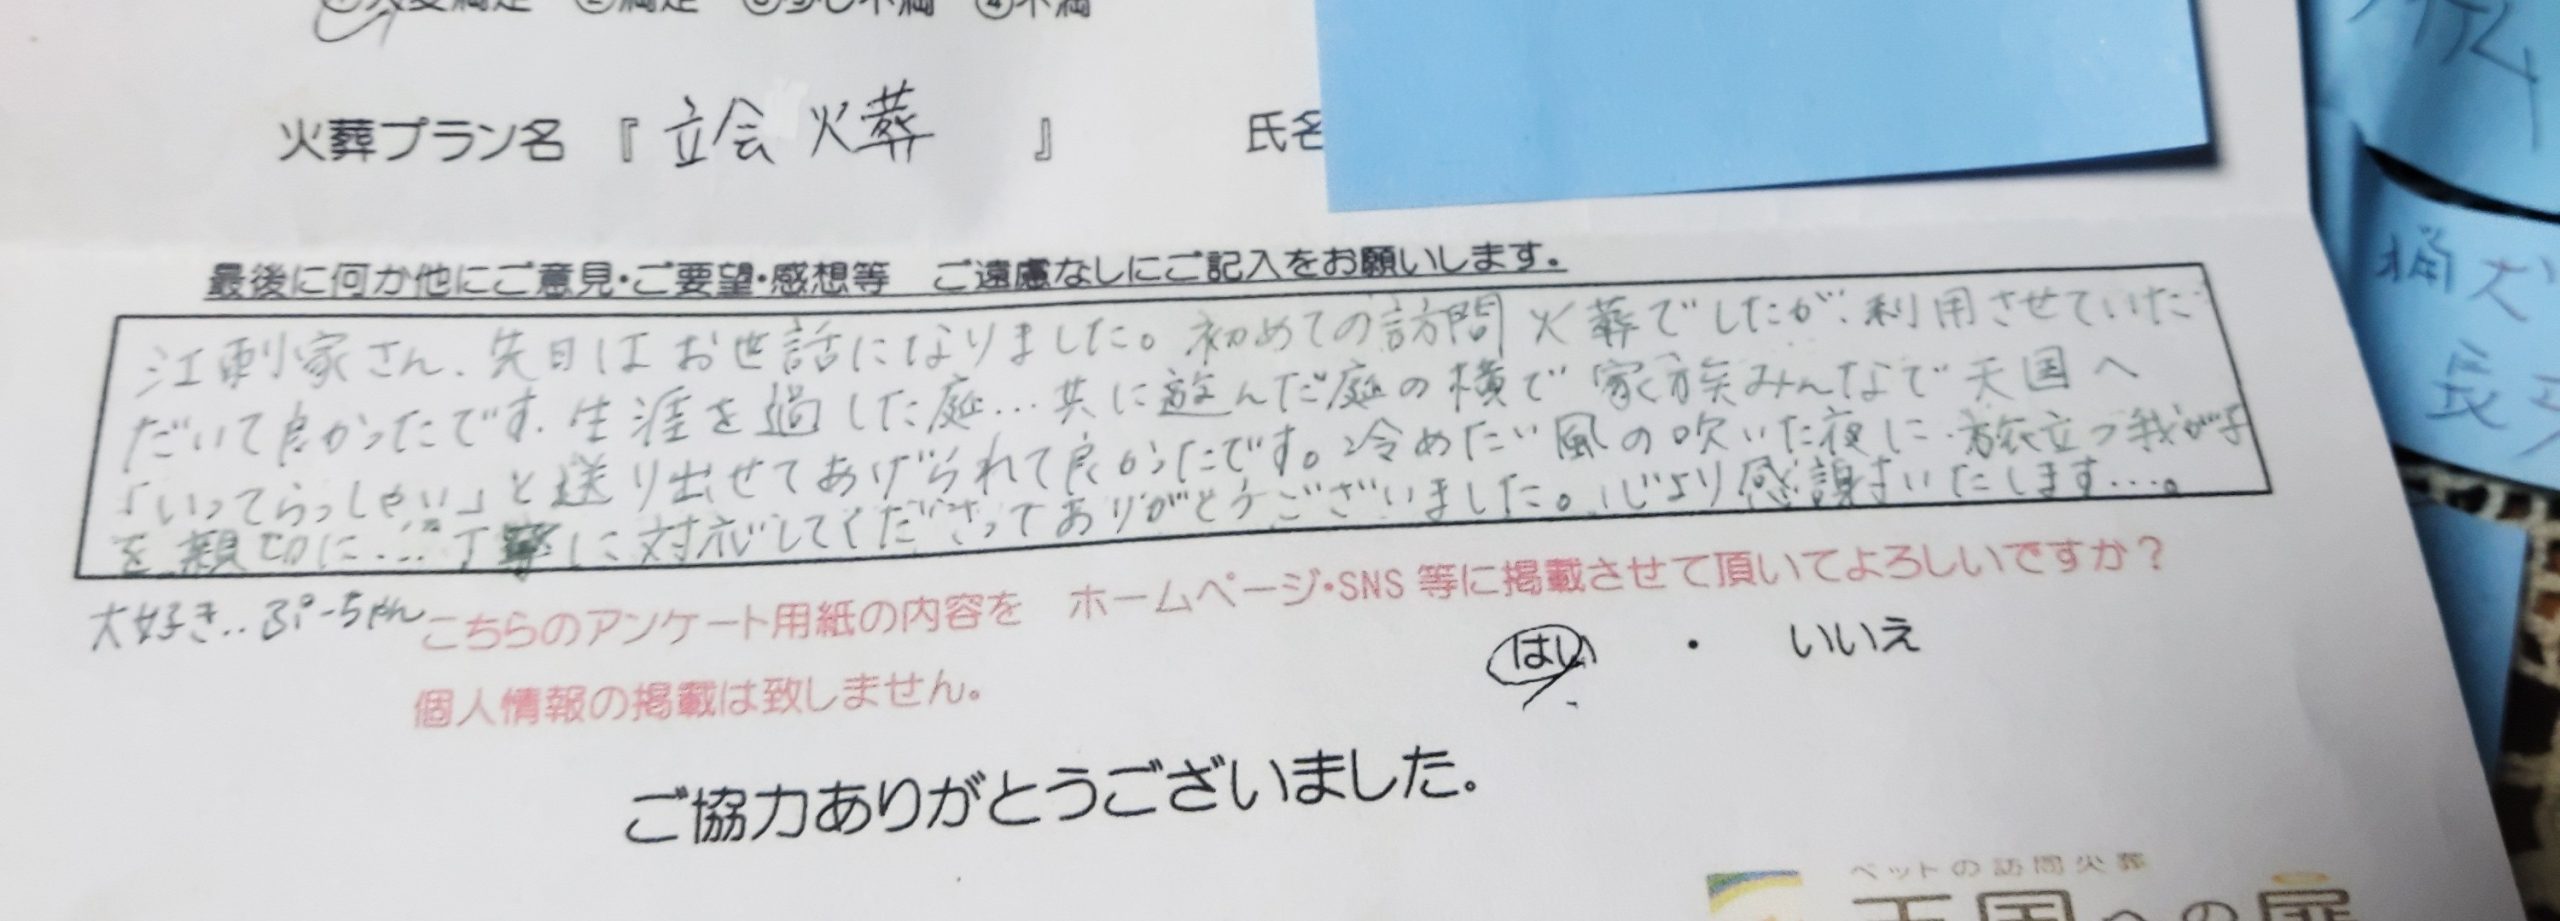 ①大変満足 ②満足 ③少し不満 ④不満
火葬プラン名 『 立会 火葬 』 氏名
最後に何か他にご意見・ご要望・感想等 ご遠慮なしにご記入をお願いします。
江刺家さん、先日はお世話になりました。初めての訪問火葬でしたが、利用させていただ
だいて良かったです。生涯を過した庭…共に遊んだ庭の横で家族みんなで天国へ
「いってらっしゃい」と送り出せてあげられて良かったです。冷めたい風の吹いた夜に旅立つ我が子
を親切に…丁寧に対応してくださってありがとうございました。心より感謝いたします…。
大好き..ぷーちゃん
こちらのアンケート用紙の内容を ホームページ・SNS 等に掲載させて頂いてよろしいですか？
はい ・ いいえ
個人情報の掲載は致しません。
ご協力ありがとうございました。
ペットの訪問火葬
天国への扉